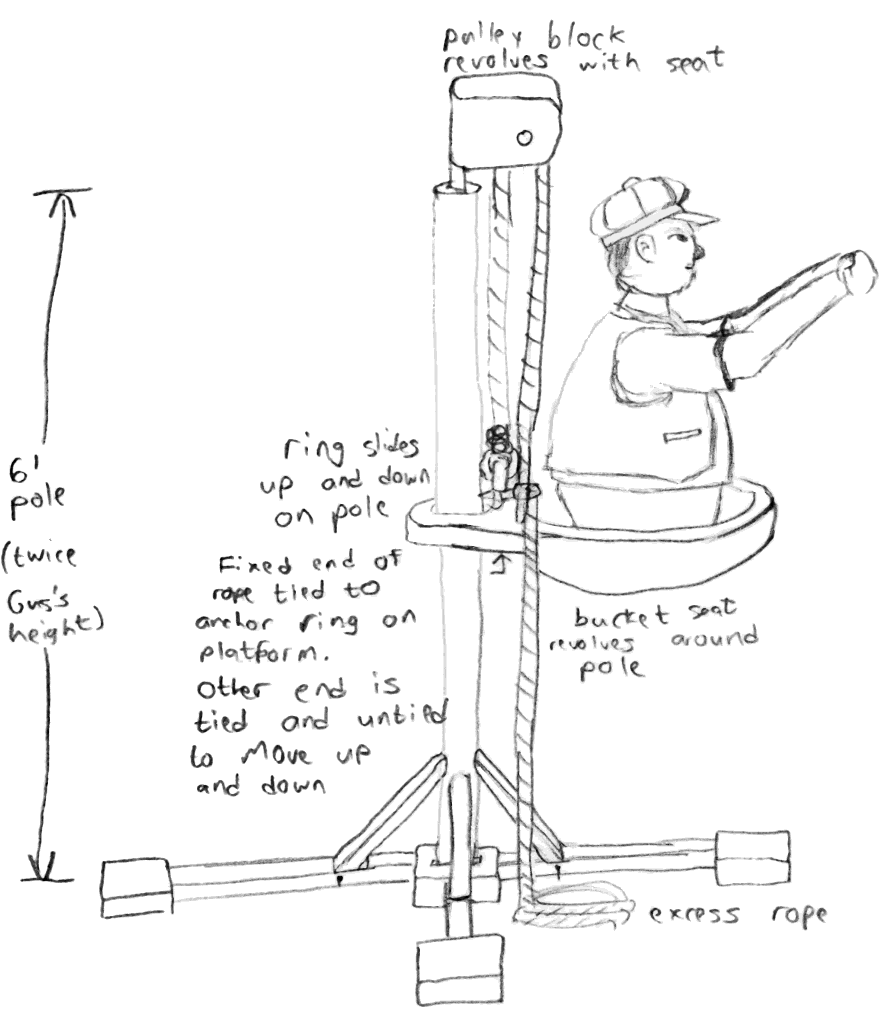 pulley block
revolves with seat
6'
pole
(twice
Gus's
height)
ring slides
up and down
on pole
Fixed end of
rope tied to
anchor ring on
platform.
Other end is
tied and untied
to move up
and down
bucket seat
revolves around
pole
excess rope